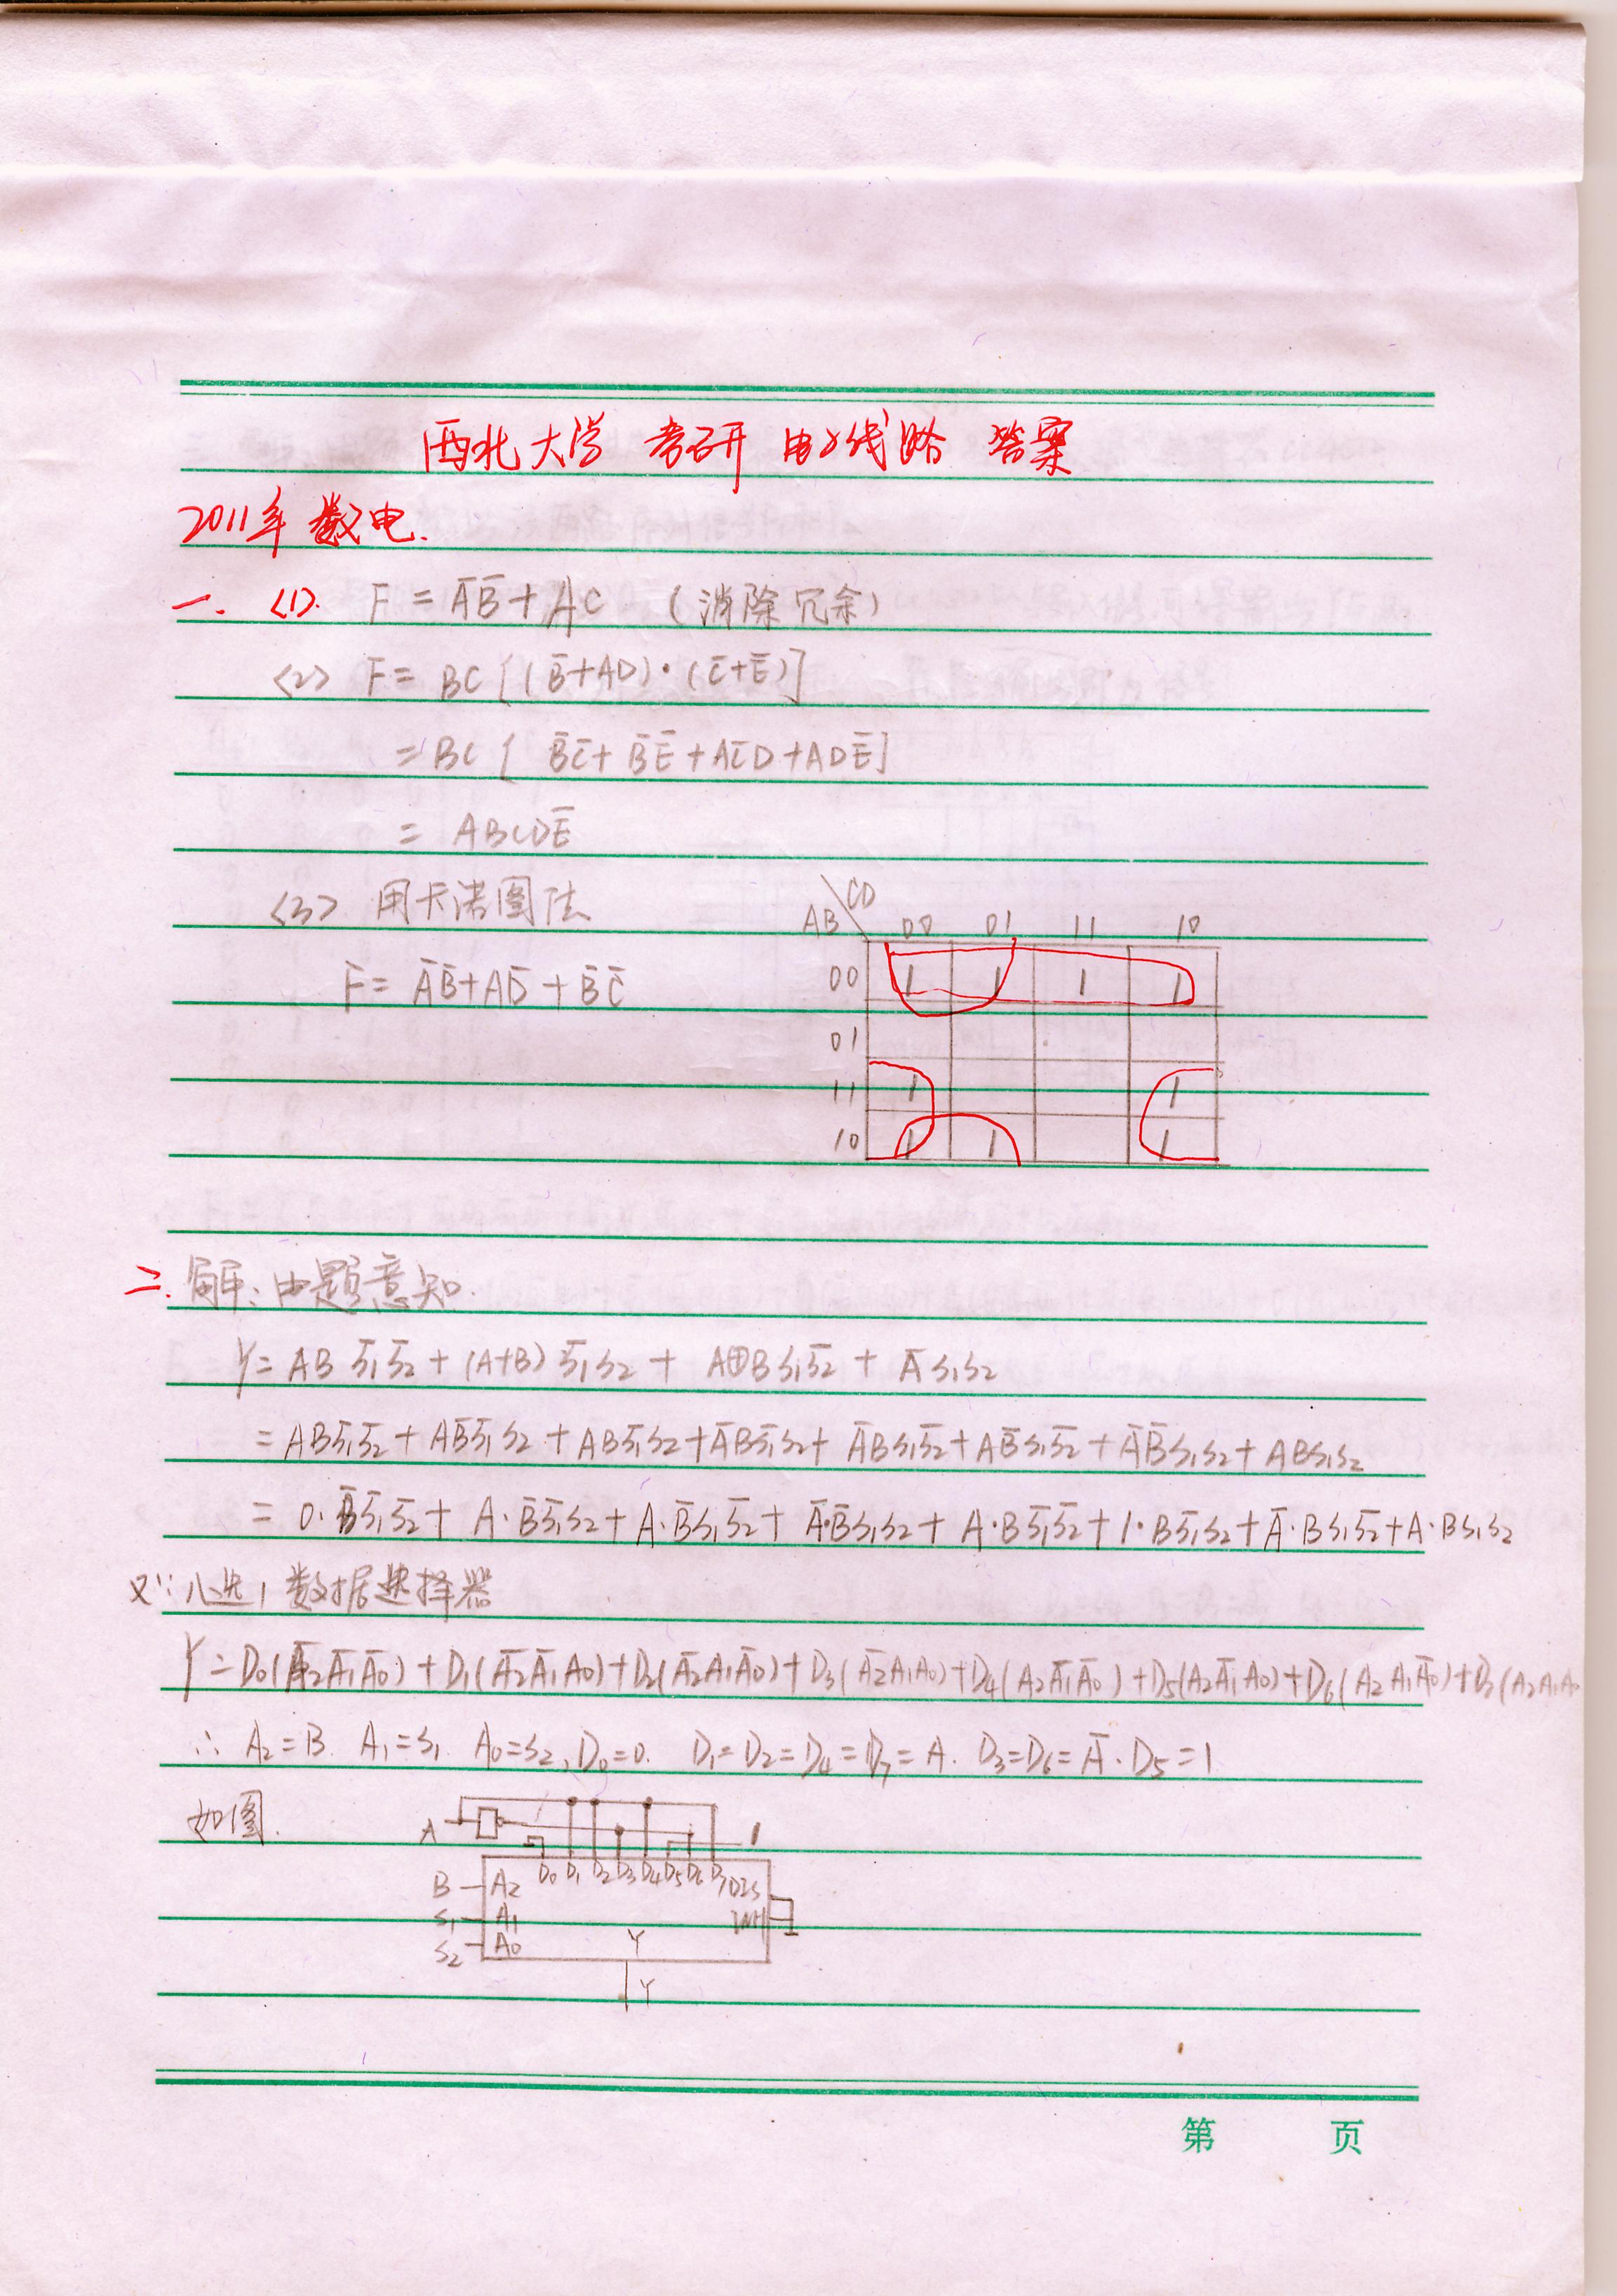 西北大学 考研 电子线路 答案
2011年 数电.
一. <1>. F = A̅B̅ + AC (消除冗余)
<2> F = BC [(B̅+AD)·(C̅+E̅)]
= BC [ B̅C̅ + B̅E̅ + AC̅D + ADE̅]
= ABCDE̅
<3> 用卡诺图法
F = A̅B̅+AD̅+B̅C̅
CD
AB 00 01 11 10
00 1 1 1 1
01
11 1 1
10 1 1 1
二. 解: 由题意知.
Y = AB S̅₁S̅₂ + (A+B) S̅₁S₂ + A⊕B S₁S̅₂ + A̅ S₁S₂
= ABS̅₁S̅₂ + AB̅S̅₁S₂ + ABS̅₁S₂ + A̅BS̅₁S₂ + A̅BS₁S̅₂ + AB̅S₁S̅₂ + A̅B̅S₁S₂ + ABS₁S₂
= 0·B̅S̅₁S̅₂ + A·B̅S̅₁S₂ + A·B̅S₁S̅₂ + A̅·B̅S₁S₂ + A·BS̅₁S̅₂ + 1·BS̅₁S₂ + A̅·BS₁S̅₂ + A·BS₁S₂
又∵八选1数据选择器
Y = D₀(A̅₂A̅₁A̅₀) + D₁(A̅₂A̅₁A₀) + D₂(A̅₂A₁A̅₀) + D₃(A̅₂A₁A₀) + D₄(A₂A̅₁A̅₀) + D₅(A₂A̅₁A₀) + D₆(A₂A₁A̅₀) + D₇(A₂A₁A₀
∴ A₂=B. A₁=S₁. A₀=S₂, D₀=0. D₁=D₂=D₄=D₇=A. D₃=D₆=A̅. D₅=1
如图.
A 1
D₀ D₁ D₂ D₃ D₄ D₅ D₆ D₇ DIS
B A₂
S₁ A₁ INH
S₂ A₀ Y
Y
第 页